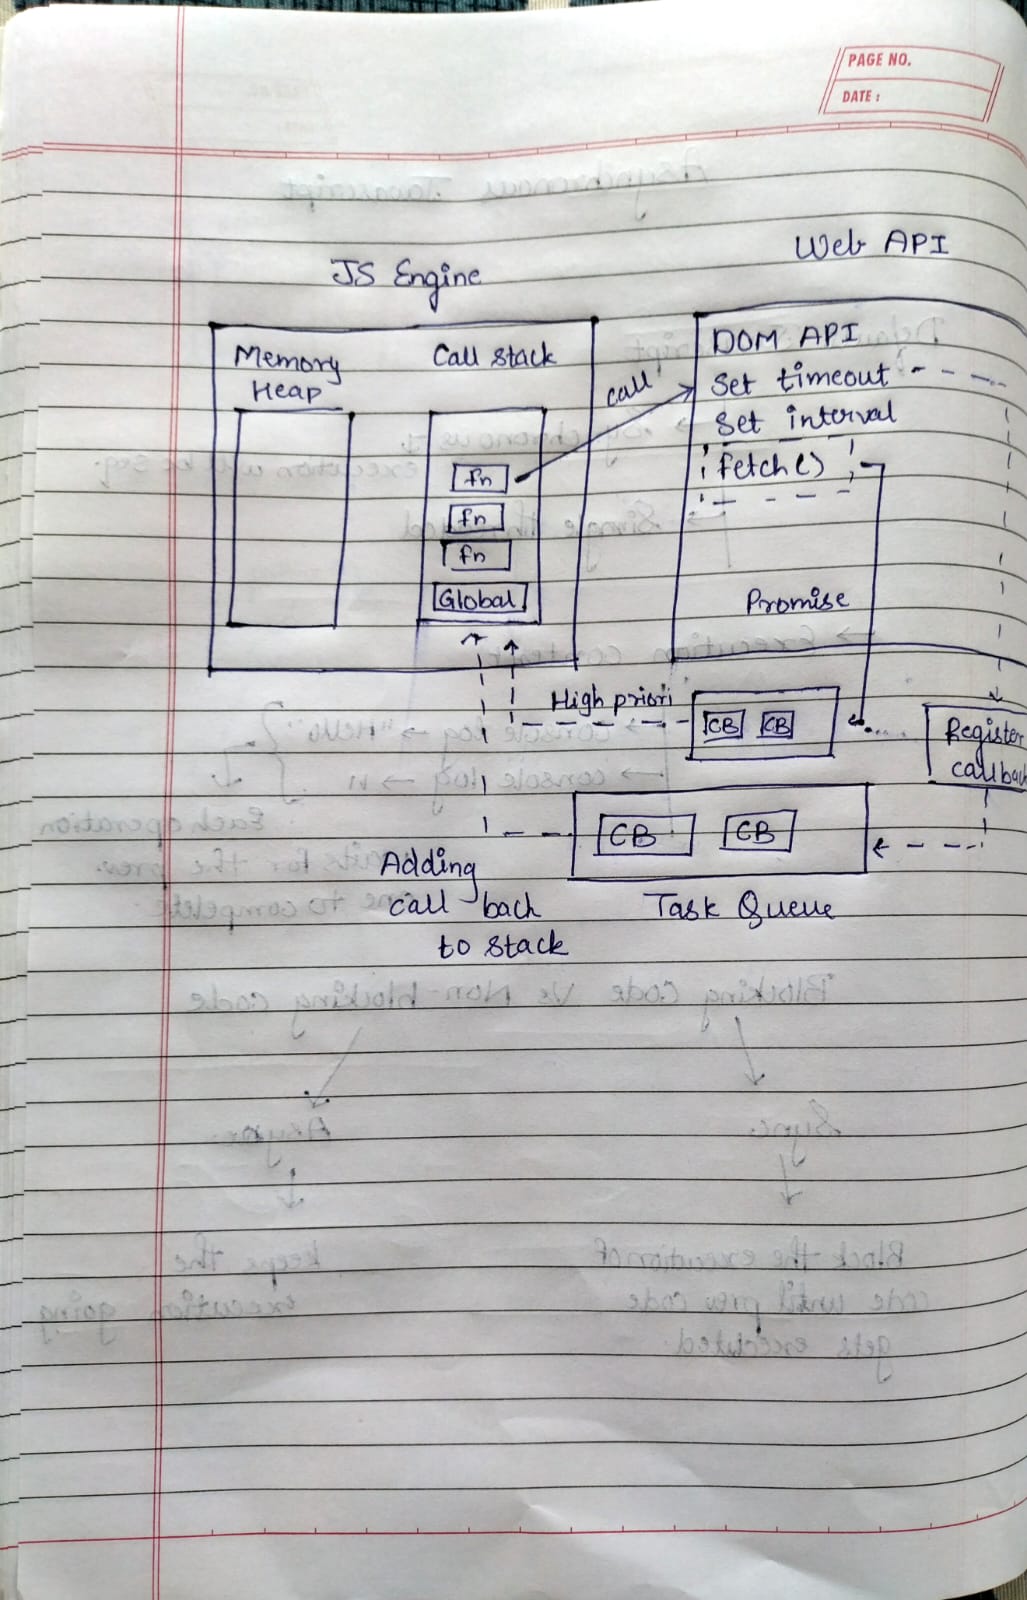 PAGE NO.
DATE :
Web API
JS Engine
Memory
Heap
Call stack
fn
fn
fn
Global
call
DOM API
Set timeout
Set interval
fetch()
Promise
High priori
CB CB
Register
callback
CB CB
Task Queue
Adding
call back
to stack